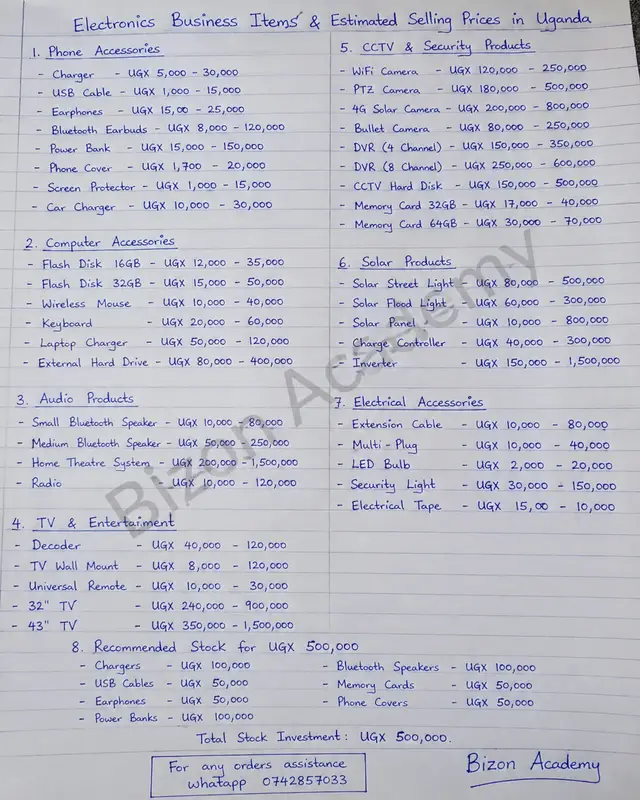 Electronics Business Items & Estimated Selling Prices in Uganda
1. Phone Accessories
- Charger - UGX 5,000 - 30,000
- USB Cable - UGX 1,000 - 15,000
- Earphones - UGX 15,00 - 25,000
- Bluetooth Earbuds - UGX 8,000 - 120,000
- Power Bank - UGX 15,000 - 150,000
- Phone Cover - UGX 1,700 - 20,000
- Screen Protector - UGX 1,000 - 15,000
- Car Charger - UGX 10,000 - 30,000
2. Computer Accessories
- Flash Disk 16GB - UGX 12,000 - 35,000
- Flash Disk 32GB - UGX 15,000 - 50,000
- Wireless Mouse - UGX 10,000 - 40,000
- Keyboard - UGX 20,000 - 60,000
- Laptop Charger - UGX 50,000 - 120,000
- External Hard Drive - UGX 80,000 - 400,000
3. Audio Products
- Small Bluetooth Speaker - UGX 10,000 - 80,000
- Medium Bluetooth Speaker - UGX 50,000 - 250,000
- Home Theatre System - UGX 200,000 - 1,500,000
- Radio - UGX 10,000 - 120,000
4. TV & Entertaiment
- Decoder - UGX 40,000 - 120,000
- TV Wall Mount - UGX 8,000 - 120,000
- Universal Remote - UGX 10,000 - 30,000
- 32" TV - UGX 240,000 - 900,000
- 43" TV - UGX 350,000 - 1,500,000
5. CCTV & Security Products
- WiFi Camera - UGX 120,000 - 250,000
- PTZ Camera - UGX 180,000 - 500,000
- 4G Solar Camera - UGX 200,000 - 800,000
- Bullet Camera - UGX 80,000 - 250,000
- DVR (4 Channel) - UGX 150,000 - 350,000
- DVR (8 Channel) - UGX 250,000 - 600,000
- CCTV Hard Disk - UGX 150,000 - 500,000
- Memory Card 32GB - UGX 17,000 - 40,000
- Memory Card 64GB - UGX 30,000 - 70,000
6. Solar Products
- Solar Street Light - UGX 80,000 - 500,000
- Solar Flood Light - UGX 60,000 - 300,000
- Solar Panel - UGX 10,000 - 800,000
- Charge Controller - UGX 40,000 - 300,000
- Inverter - UGX 150,000 - 1,500,000
7. Electrical Accessories
- Extension Cable - UGX 10,000 - 80,000
- Multi-Plug - UGX 10,000 - 40,000
- LED Bulb - UGX 2,000 - 20,000
- Security Light - UGX 30,000 - 150,000
- Electrical Tape - UGX 15,00 - 10,000
8. Recommended Stock for UGX 500,000
- Chargers - UGX 100,000
- USB Cables - UGX 50,000
- Earphones - UGX 50,000
- Power Banks - UGX 100,000
- Bluetooth Speakers - UGX 100,000
- Memory Cards - UGX 50,000
- Phone Covers - UGX 50,000
Total Stock Investment: UGX 500,000.
For any orders assistance
whatapp 0742857033
Bizon Academy
Bizon Academy